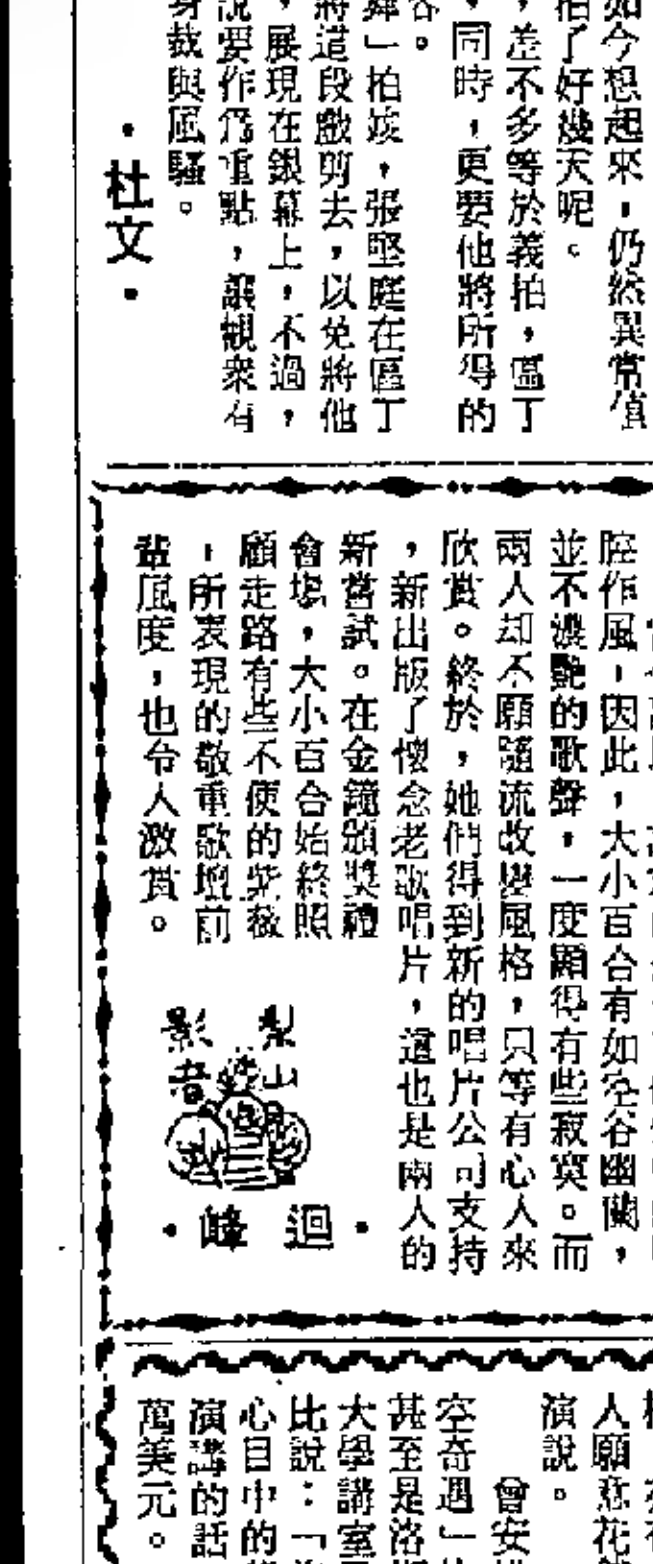 如今想起來，仍然異常值
拍了好幾天呢。
，差不多等於義拍，區丁
，同時，更要他將所得的
容。
舞」拍竣，張堅庭在區丁
將這段戲剪去，以免將他
，展現在銀幕上，不過，
說要作為重點，讓觀衆有
身裁與風騷。
・杜文・
腔作風，因此，大小百合有如空谷幽蘭，
並不濃艷的歌聲，一度顯得有些寂寞。而
兩人却不願隨流改變風格，只等有心人來
欣賞。終於，她們得到新的唱片公司支持
，新出版了懷念老歌唱片，這也是兩人的
新嘗試。在金鐘頒獎禮
會場，大小百合始終照
顧走路有些不便的紫薇
，所表現的敬重歌壇前
輩風度，也令人激賞。
梨山
影者
・迴峰・
人願意花
演說。
曾安
空奇遇」
甚至是洛
大學講室
比說：「
心目中的
演講的話
萬美元。